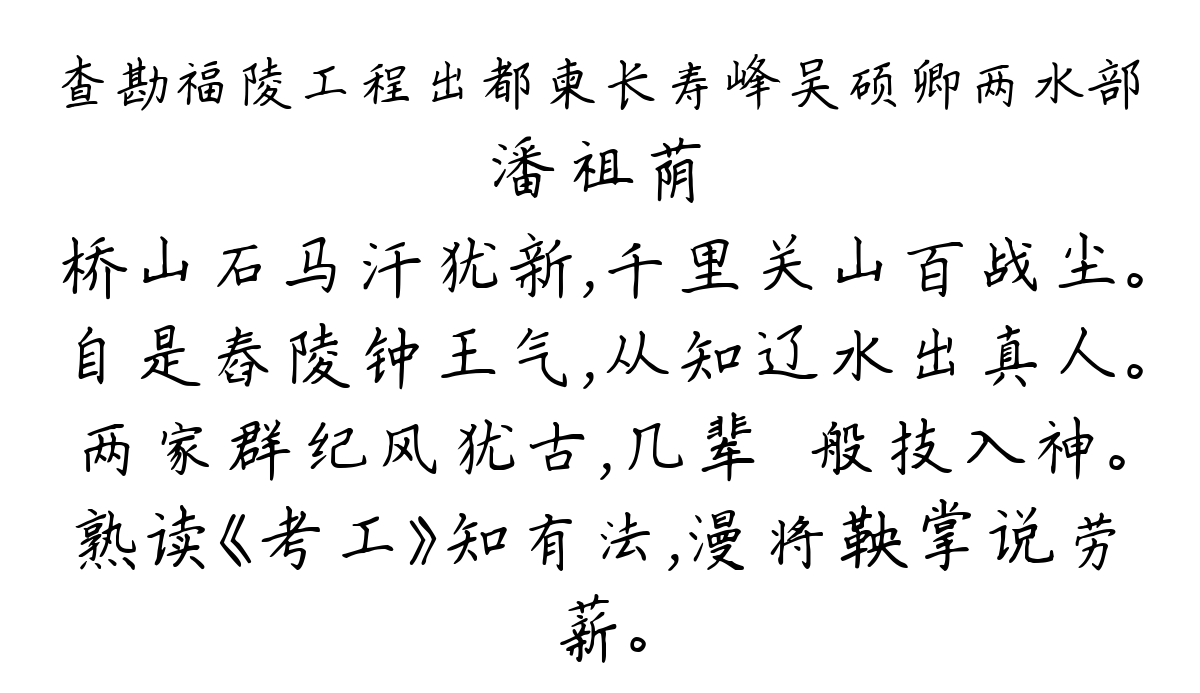 查勘福陵工程出都柬长寿峰吴硕卿两水部
潘祖荫
桥山石马汗犹新,千里关山百战尘。
自是舂陵钟王气,从知辽水出真人。
两家群纪风犹古,几辈 般技入神。
熟读《考工》知有法,漫将鞅掌说劳
薪。